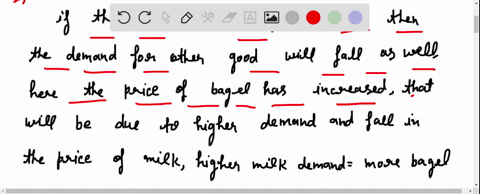 if th then
the demand for other good will fall as well,
here the price of bagel has increased, that
will be due to higher demand and fall in
the price of milk, higher milk demand = more bagel